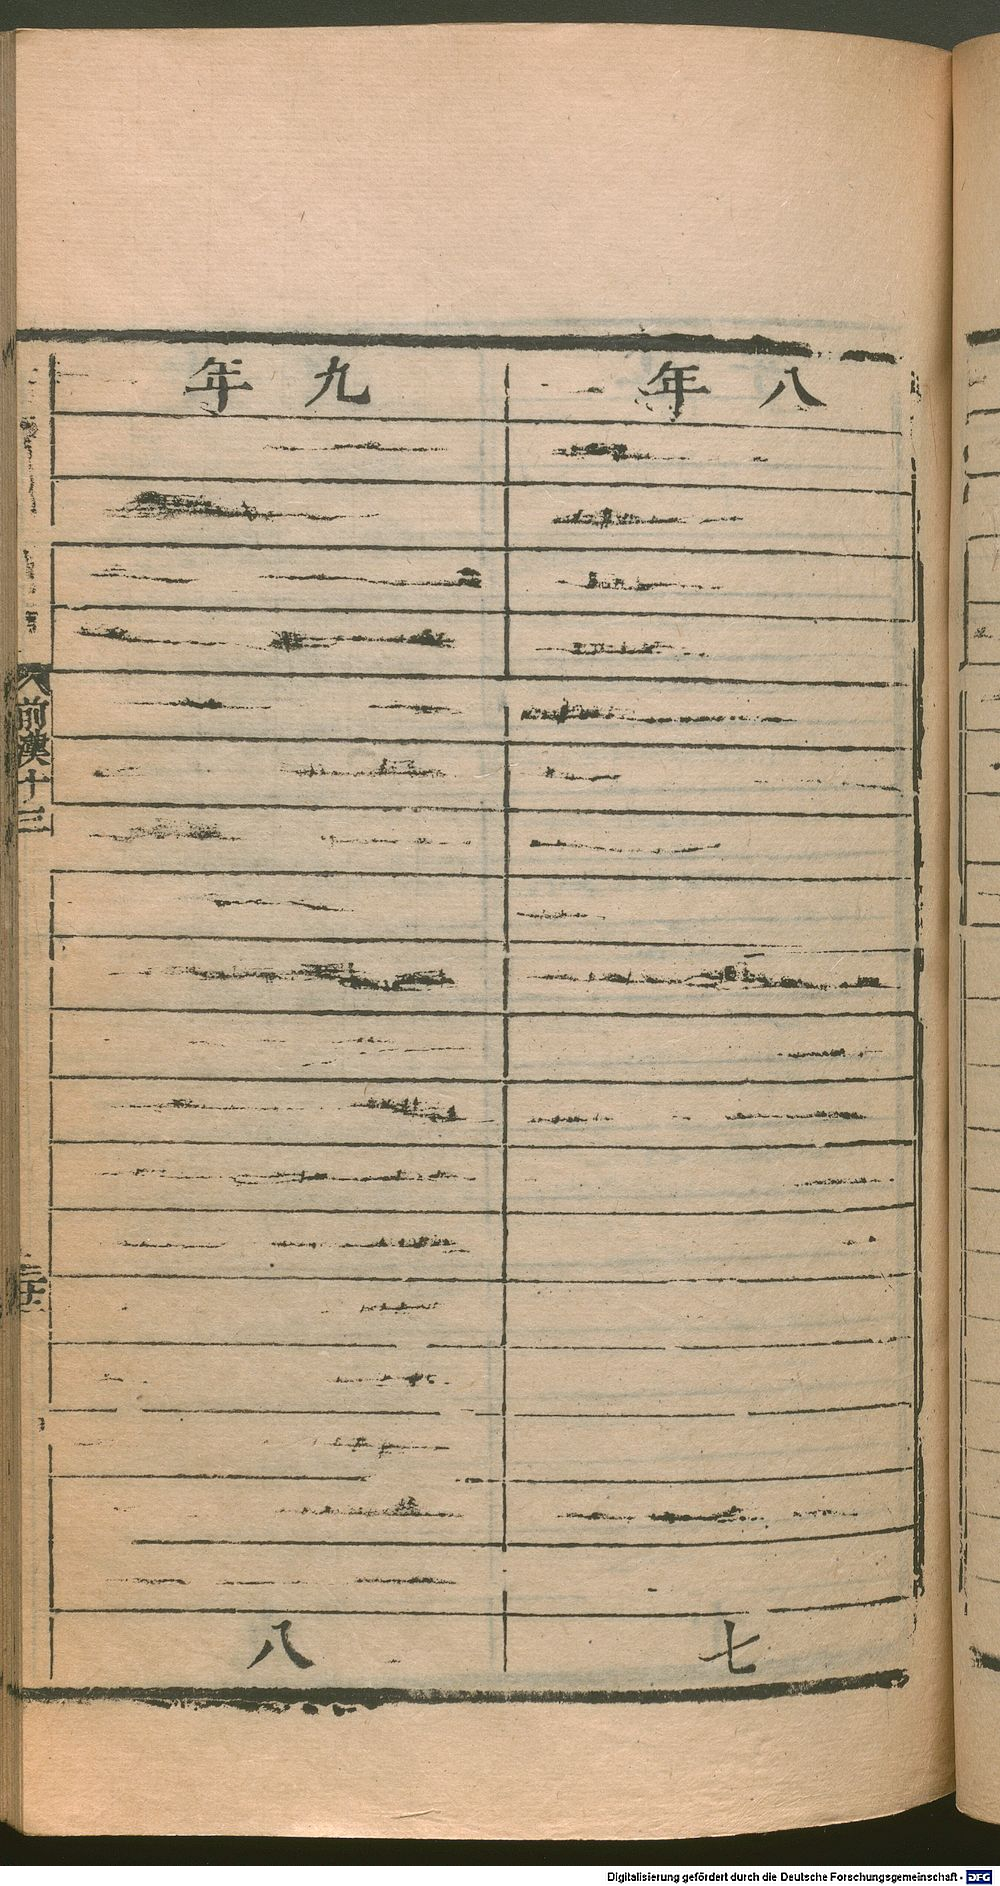 八年
九年
七
八
前漢十三
Digitalisierung gefördert durch die Deutsche Forschungsgemeinschaft - DFG